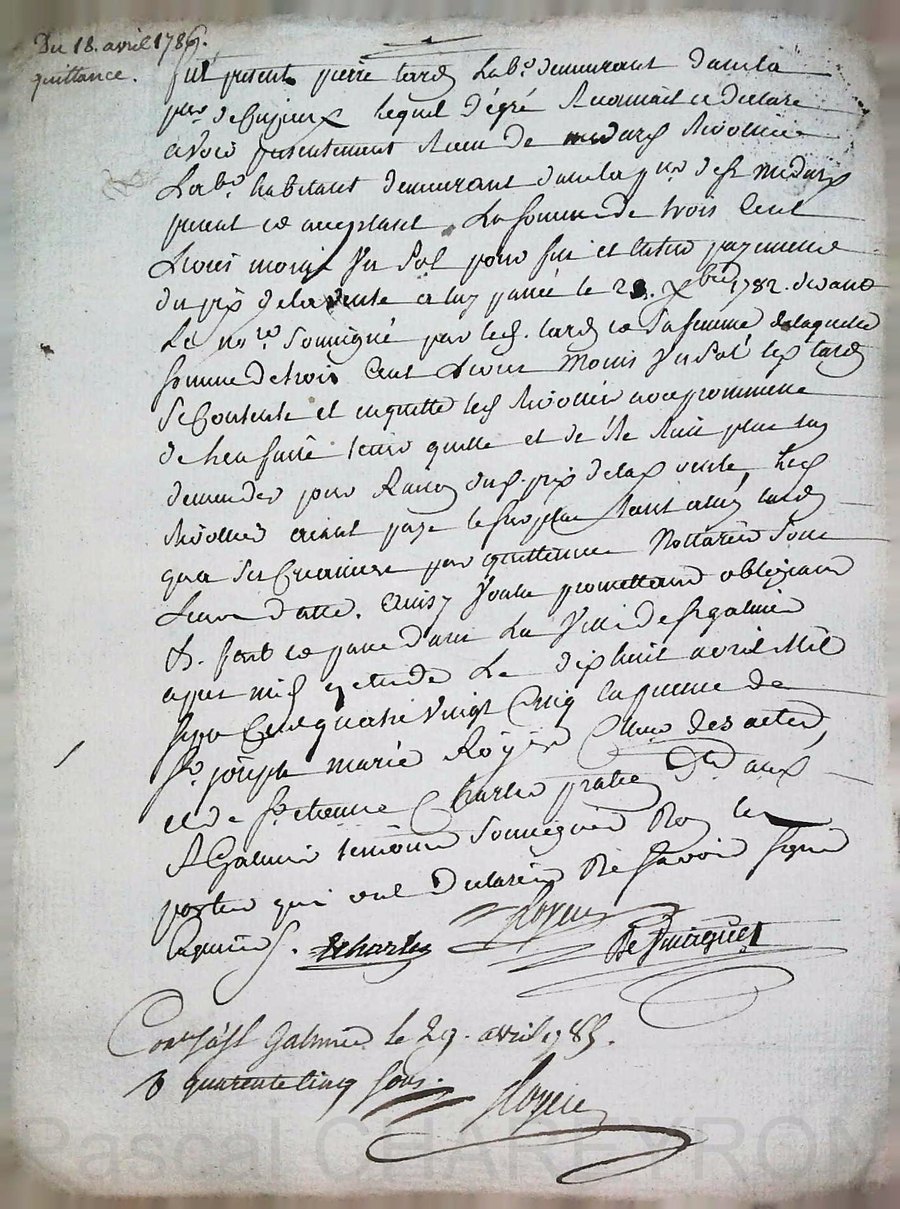 Du 18. avril 1786.
quittance.
fut present pierre tardy Lab.r demeurant dans la
p.sse de Cuzieux lequel de gré Reconnait et declare
avoir presentement Receu de medard Rivollier
Lab.r habitant demeurant dans la p.sse de st medard
present et acceptant La somme de trois Cent
Livres moins Un Sol pour fin et entier payement
du prix de la vente a luy passée le 1782. devant
Le no.re soussigné par led. tardy et sa femme de laquelle
somme de trois Cent Livres Moins Un Sol led tardy
se Contente et enquitte led Rivollier avec promesse
de l'en faire tenir quitte et de ne luy Rien plus
demander pour Raison dud. prix de lad vente, led
Rivollier aiant payé le surplus tant aud tardy
qu'a ses Creanciers par quittances Nottariées sous
Leurs datte. Ainsy Voulu promettant obligeant
&. fait et passé dans La Ville de st galmier
apres midy etude Le dix huit avril Mil
sept Cent quatre Vingt Cinq En presence de
Sr joseph marie Royer des actes
et de Sr etienne Charles praticien aux
St Galmier temoins Soussignés Non les
parties qui ont declaré Ne savoir signer
Requis S. Charles Royer
Con.lé à St Galmier le 29. avril 1785.
R quarente Cinq sous.
Royer
Pascal CHAREYRON